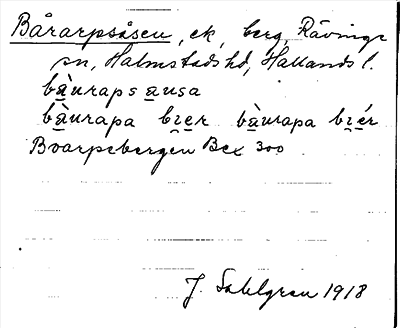 Bårarpsåsen, ek, berg, Rävinge
sn, Halmstads hd, Hallands l.
bàurapsausa
bàurapa bıer bàurapa bıér
Boarpsbergen Bex 300
J. Sahlgren 1918